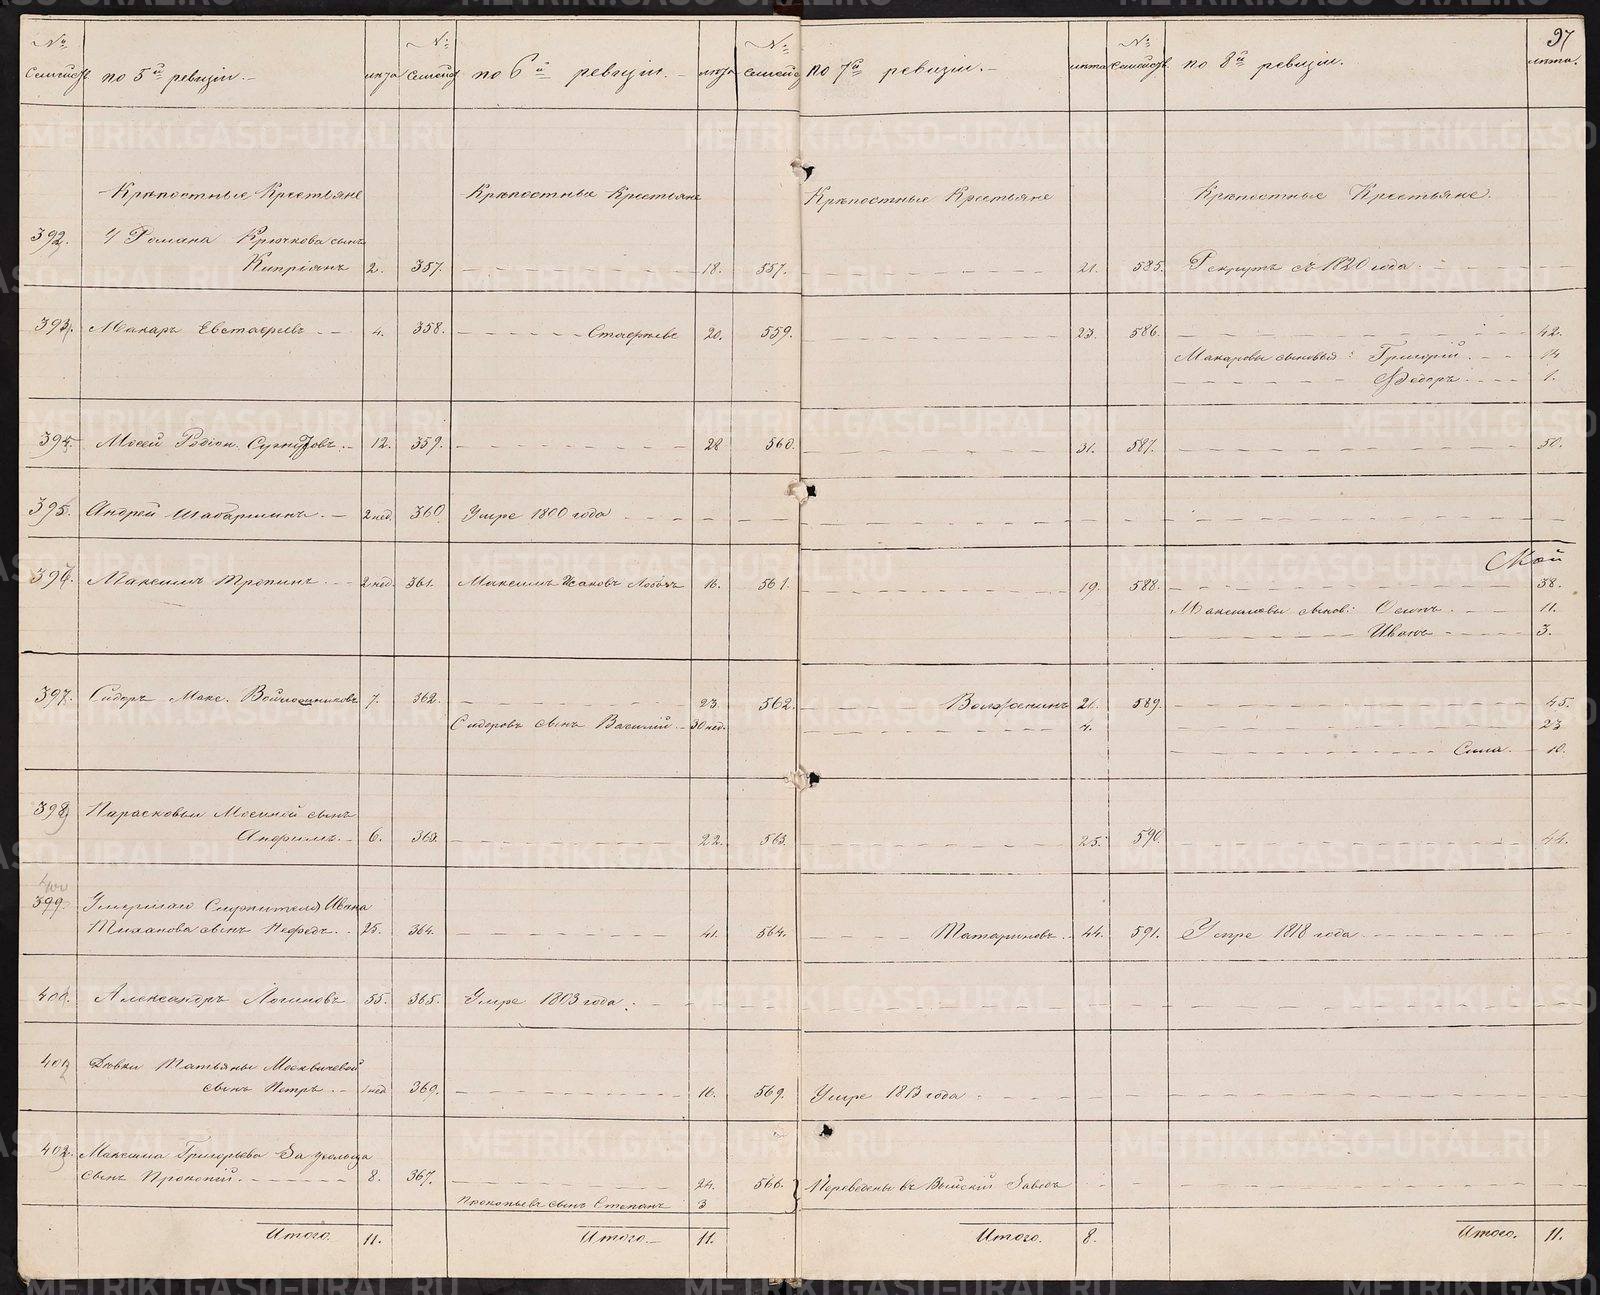 97
№ Семейст. по 5й ревизіи. лѣта № Семейст. по 6й ревизіи. лѣта № Семейст. по 7й ревизіи. лѣта № Семейств. по 8й ревизіи. лѣта.
Крѣпостные Крестьяне Крѣпостные Крестьяне Крѣпостные Крестьяне Крѣпостные Крестьяне.
392. У Романа Крючкова сынъ
Кипріянъ 2. 357. 18. 557. 21. 585. Рекрутъ съ 1820 года
393. Макаръ Евстафіевъ 4. 358. Стафѣевъ 20. 559. 23. 586. 42.
Макаровы сыновья: Григорій
Ѳедоръ 1.
394. Мосей Родіон. 12. 359. 28 560. 31. 587. 50.
395. Андрей Шабаршинъ. 2 нед. 360. Умре 1800 года
Мой
396. Максимъ Тропинъ 2 нед. 361. Максимъ Исаковъ 16. 561. 19. 588. 38.
Максимовы сынов: Осипъ 11.
Иванъ 3.
397. Сидоръ Макс. Войлошниковъ 7. 362. 23 562. 21. 589. 45.
Сидоровъ сынъ Василій 30 нед. 23
Сила 10.
398. Парасковьи Мосиной сынъ
Анфимъ. 6. 363. 22. 563. 25. 590. 44.
400
399. Умершаго Служителя Ивана
сынъ Нефедъ. 25. 364. 41. 564. Татариновъ. 44. 591. Умре 1818 года
400. Александръ Логиновъ 55. 365. Умре 1803 года.
401 Дѣвки Татьяны Москвичевой
сынъ Петръ 369. 16. 569. Умре 1813 года
402. Максима Григорьева
сынъ Прокопій. 8. 367. 24. 566. Переведены въ Выйскій Заводъ
Прокопьевъ сынъ Степанъ 3
Итого. 11. Итого. 11. Итого. 8. Итого. 11.
METRIKI.GASO-URAL.RU